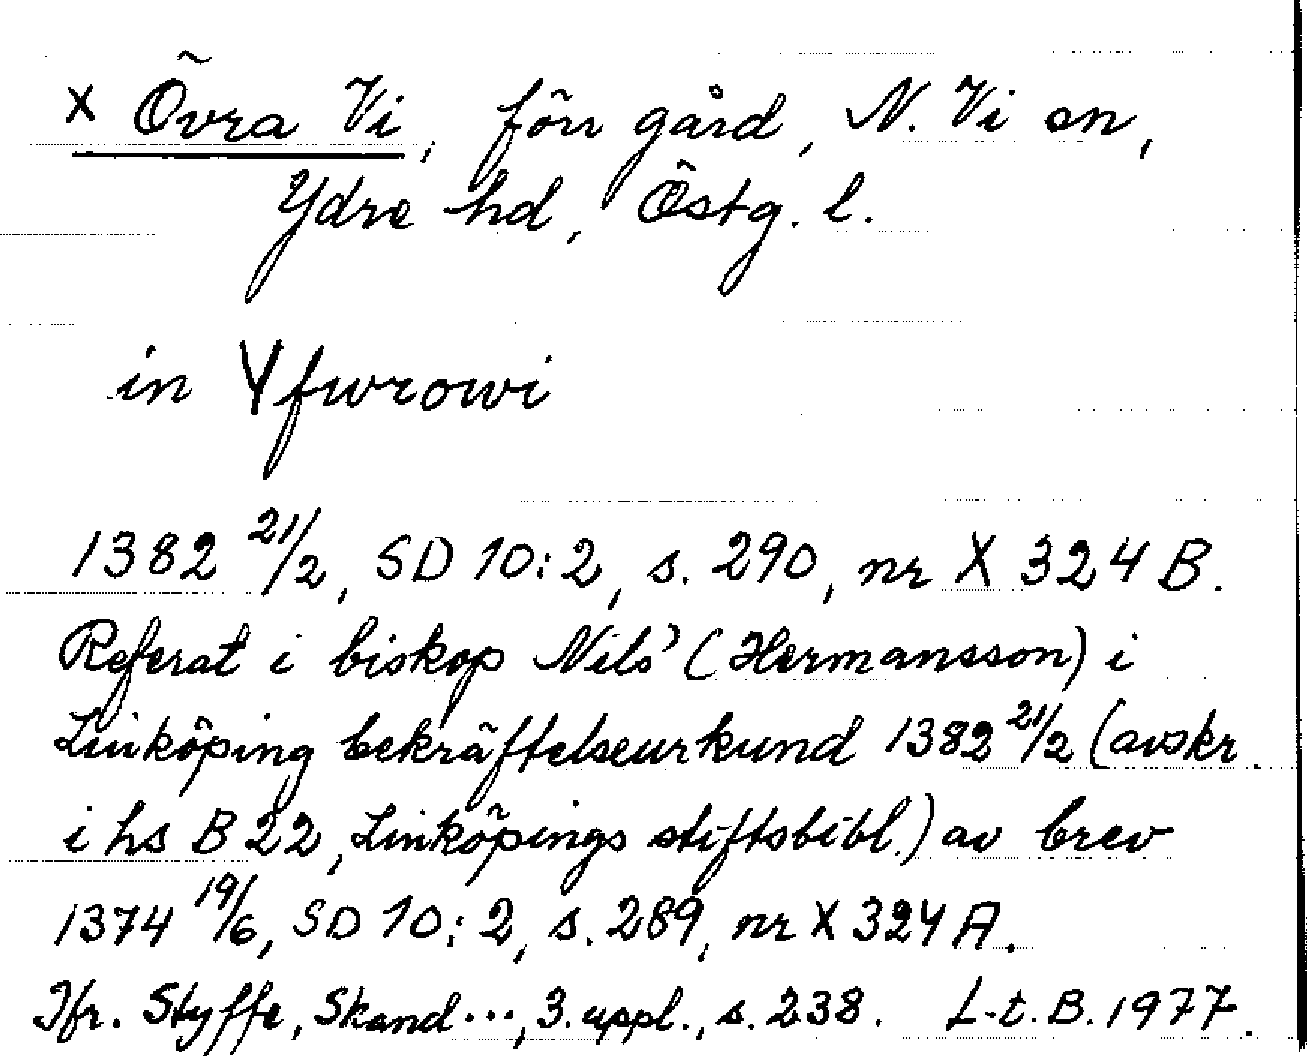 x Övra Vi, förr gård, N. Vi sn,
Ydre hd, Östg. l.
in Yfwrowi
1382 21/2, SD 10:2, s. 290, nr X 324 B.
Referat i biskop Nils' (Hermansson) i
Linköping bekräftelseurkund 1382 21/2 (avskr.
i hs B 22, Linköpings stiftsbibl.) av brev
1374 19/6, SD 10:2, s. 289, nr X 324 A.
Jfr. Styffe, Skand..., 3. uppl., s. 238. L-t. B. 1977.